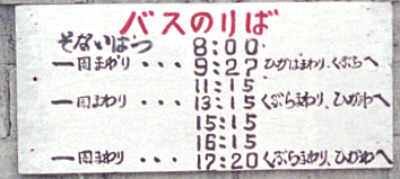 バスのりば
そないはつ 8:00
一周まわり・・・9:27 ひがはまわり、くぶらへ
11:15
一周まわり・・・13:15 くぶらまわり、ひがわへ
15:15
16:15
一周まわり・・・17:20 くぶらまわり、ひがわへ